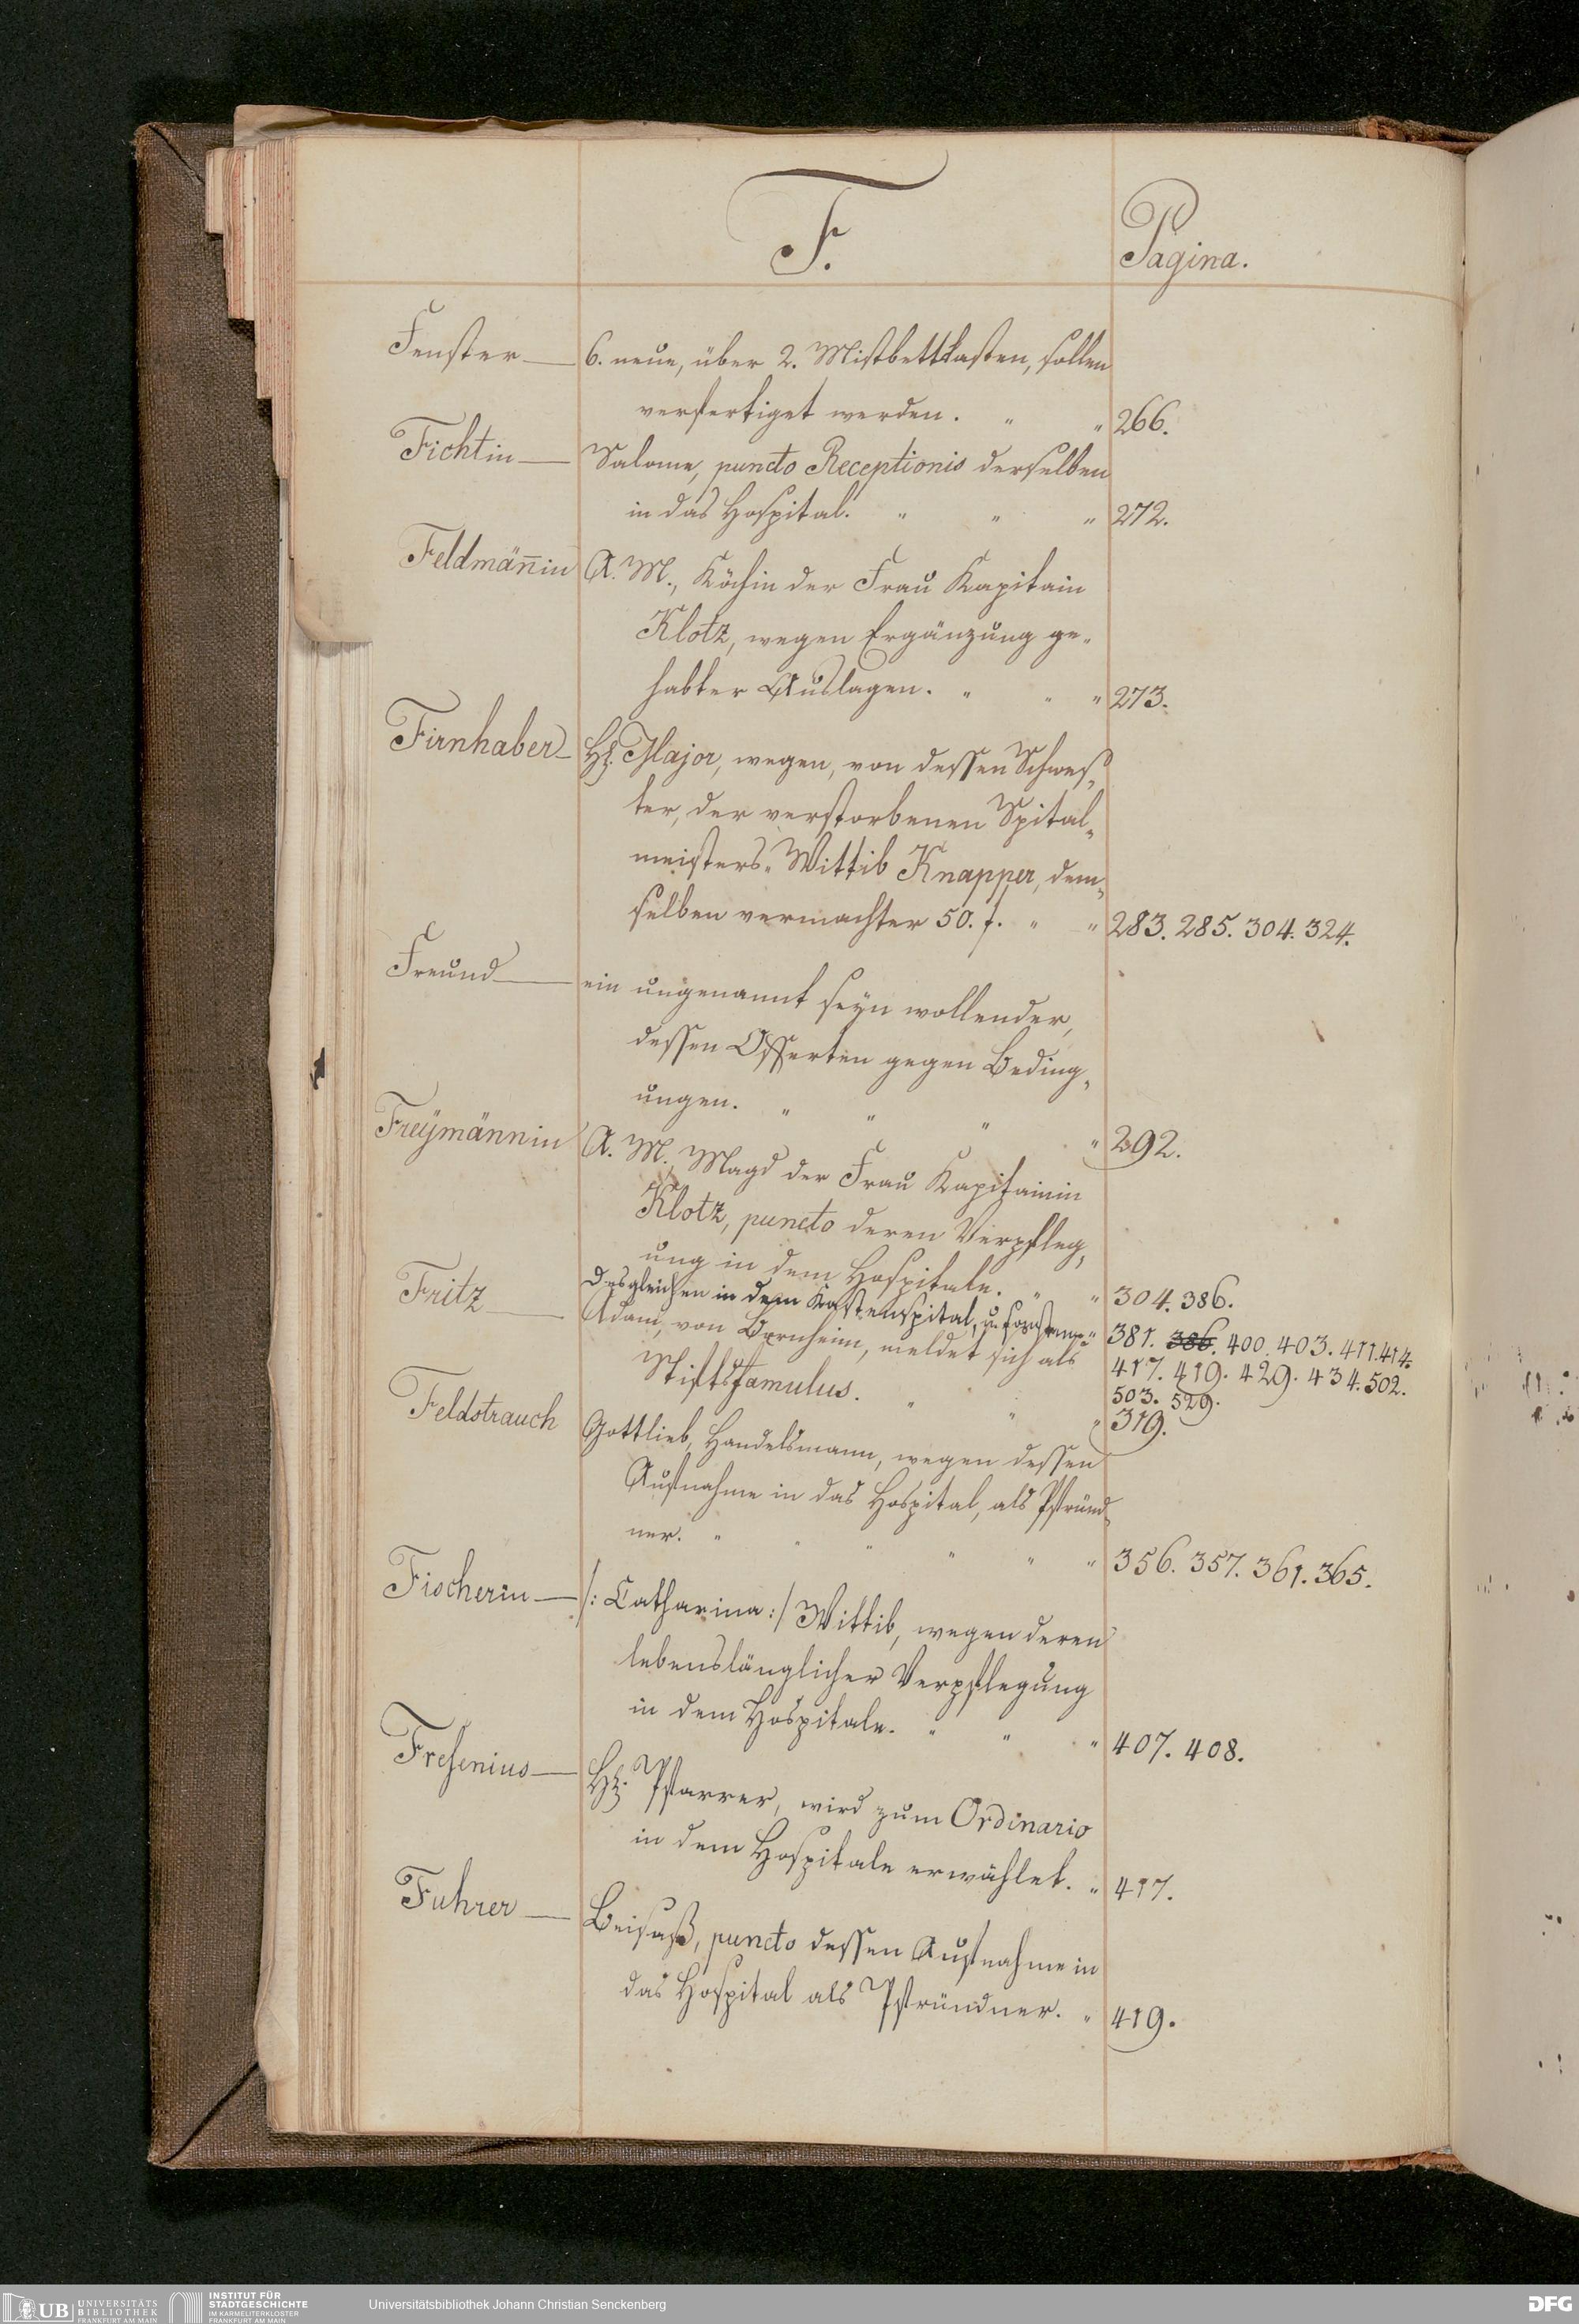 F.
Pagina.
Fenster — 6. neue, über 2. Mistbettkasten, sollen
verfertiget werden. " " 266.
Fichtin — Salome, puncto Receptionis derselben
in das Hospital. " " " 272.
Feldmän̄in A. M., Köchin der Frau Kapitain
Klotz, wegen Ergänzung ge-
habter Auslagen. " " " 273.
Firnhaber — H. Major, wegen, von dessen Schwes-
ter, der verstorbenen Spital-
meisters-Wittib Knapper, dem-
selben vermachter 50. f. " " 283. 285. 304. 324.
Freund — ein ungenannt seyn wollender,
dessen Offerten gegen Beding-
ungen. " " " " 292.
Freÿmännin A. M., Magd der Frau Kapitainin
Klotz, puncto deren Verpfleg-
ung in dem Hospitale. " " 304. 386.
Desgleichen in dem Kastenspital, u. " 381. 386. 400. 403. 411. 414.
417. 419. 429. 434. 502.
503. 529.
Fritz — Adam, von Bornheim, meldet sich als
Stiftsfamulus. " " " 319.
Feldstrauch Gottlieb, Handelsmann, wegen dessen
Aufnahme in das Hospital, als Pfründ-
ner. " " " " " " 356. 357. 361. 365.
Fischerin — /: Catharina :/ Wittib, wegen deren
lebenslänglicher Verpflegung
in dem Hospitale. " " " 407. 408.
Fresenius — H. Pfarrer, wird zum Ordinario
in dem Hospitale erwählet. " 417.
Fuhrer — Beisaß, puncto dessen Aufnahme in
das Hospital als Pfründner. " 419.
UB UNIVERSITÄTS
BIBLIOTHEK
FRANKFURT AM MAIN
INSTITUT FÜR
STADTGESCHICHTE
IM KARMELITERKLOSTER
FRANKFURT AM MAIN
Universitätsbibliothek Johann Christian Senckenberg
DFG